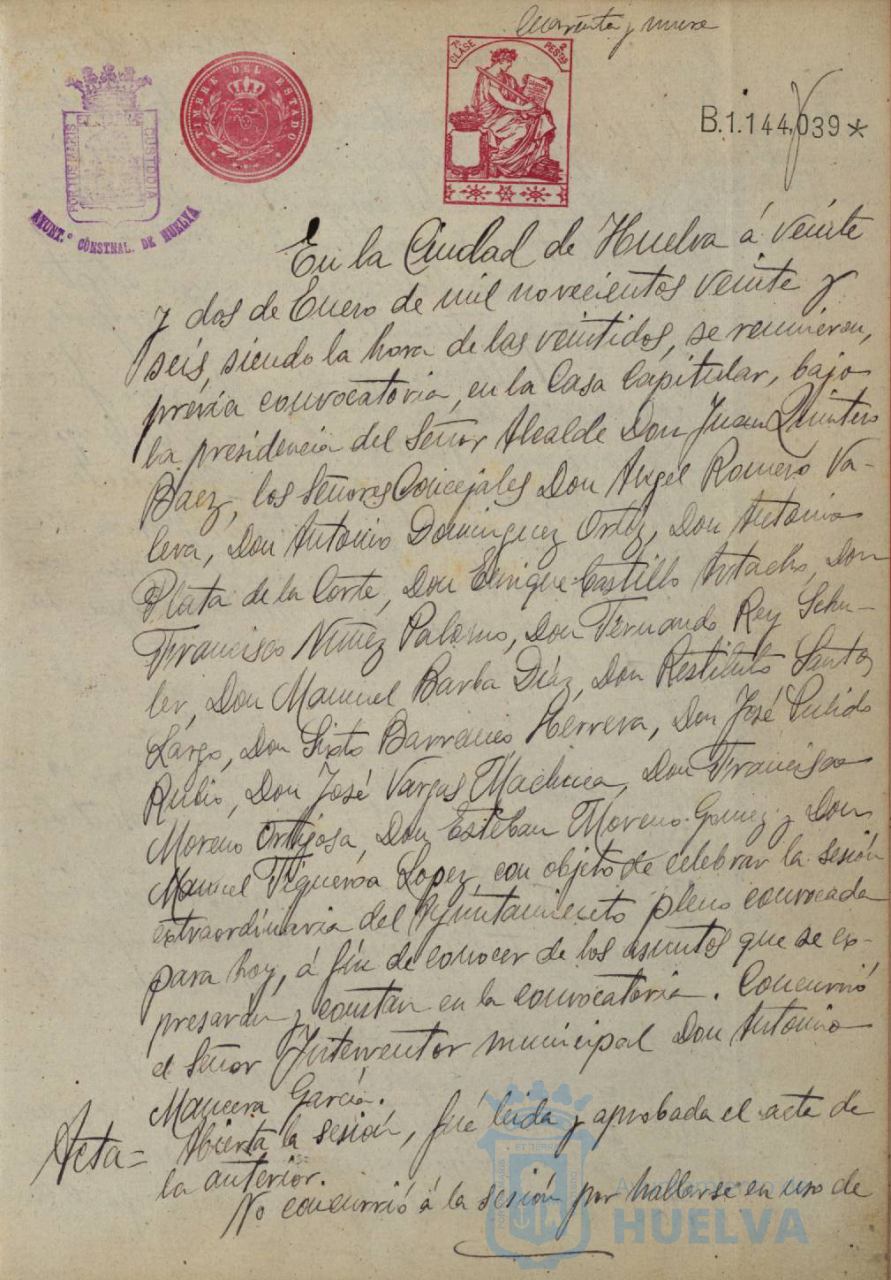 Cuarenta y nueve
7ª CLASE
2 PESTAS
TIMBRE DEL ESTADO
B.1.144,039*
PORTUS MARIS
CUSTODIA
AYUNT.º CONSTNAL. DE HUELVA
En la Ciudad de Huelva á veinte
y dos de Enero de mil novecientos veinte y
seis, siendo la hora de las veintidos, se reunieron,
previa convocatoria, en la Casa Capitular, bajo
la presidencia del Señor Alcalde Don Juan Quintero
Baez, los Señores Concejales Don Angel Romero Va-
leva, Don Antonio Dominguez Ortiz, Don Antonio
Plata de la Corte, Don Enrique Castillo Artacho, Don
Francisco Nuñez Palomo, Don Fernando Rey Schu-
ler, Don Manuel Barba Diaz, Don Restituto Santos
Largo, Don Sixto Barranco Herrera, Don José Pulido
Rubio, Don José Vargas Machuca, Don Francisco
Moreno Ortigosa, Don Esteban Moreno Gomez y Don
Manuel Figueroa Lopez, con objeto de celebrar la sesión
extraordinaria del Ayuntamiento pleno convocada
para hoy, á fin de conocer de los asuntos que se ex-
presarán y constan en la convocatoria. Concurrió
el Señor Interventor municipal Don Antonio
Mancera García.
Acta= Abierta la sesión, fué leida y aprobada el acta de
la anterior.
No concurrió á la sesión por hallarse en uso de
Ayuntamiento de
HUELVA